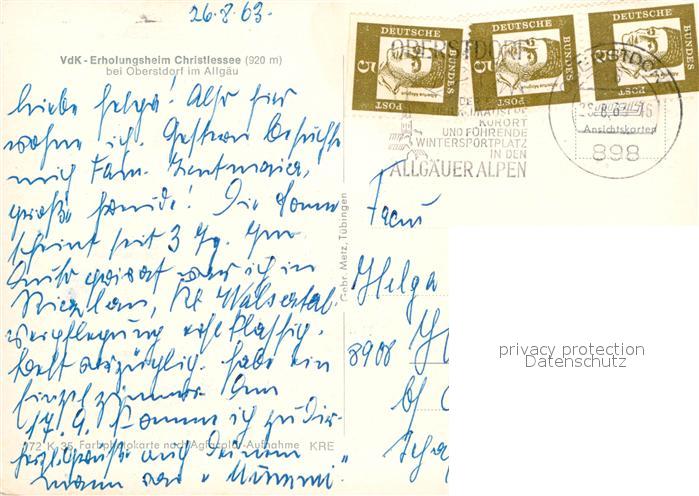 26.8.63.
VdK - Erholungsheim Christlessee (920 m)
bei Oberstdorf im Allgäu
liebe Helga! Also hier
wohne ich. Gestern besuchte
mich Fam.
große Freude! Die Sonne
scheint seit 3 Tg. Im
Auto war ich in
Riezlern, Kl. Walsertal.
Verpflegung erstklassig.
Bett vorzüglich. habe ein
Einzelzimmer. Am
17.9. komme ich zu Dir
und Deinem
Mann "Mummi"
172 K 35 Farbphotokarte nach Agfacolor-Aufnahme KRE
Gebr. Metz, Tübingen
DEUTSCHE BUNDESPOST 5
DEUTSCHE BUNDESPOST 5
DEUTSCHE BUNDESPOST 5
OBERSTDORF
KURORT
UND FÜHRENDE
WINTERSPORTPLATZ
IN DEN
ALLGÄUER ALPEN
Ansichtskarten
898
Frau
Helga
8908
privacy protection
Datenschutz